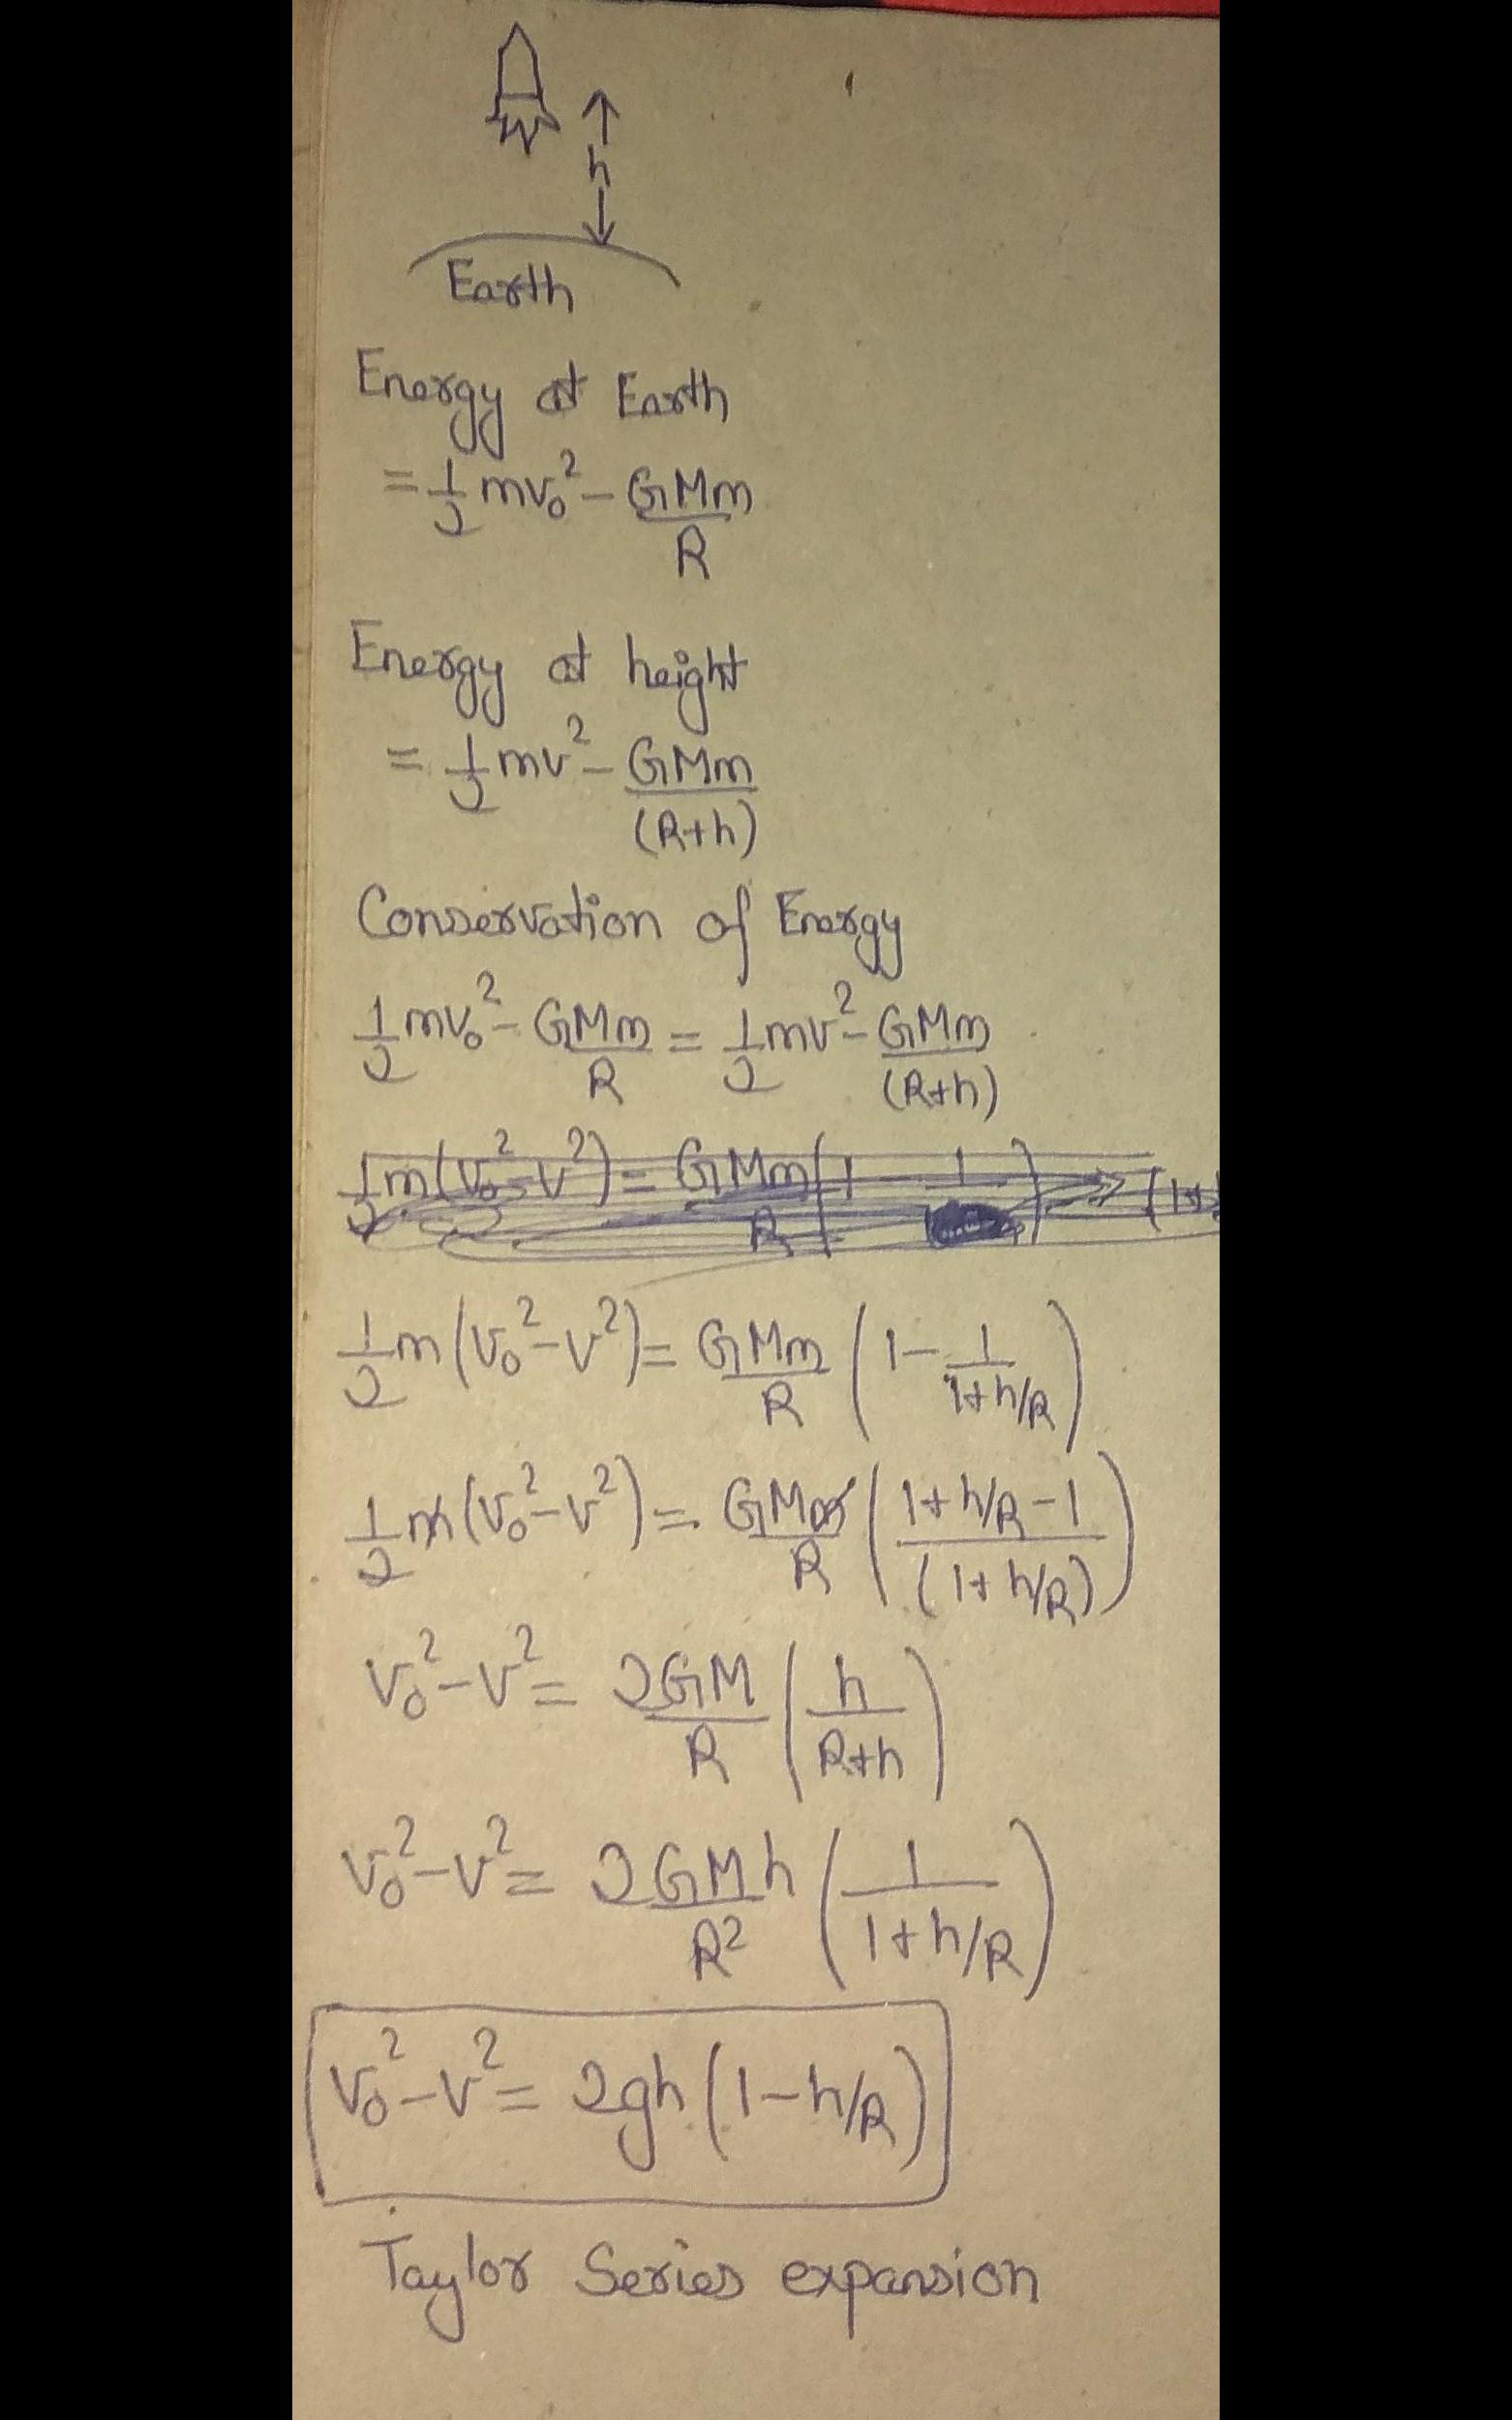 h
Earth
Energy at Earth
= 1/2 mv₀² - GMm/R
Energy at height
= 1/2 mv² - GMm/(R+h)
Conservation of Energy
1/2 mv₀² - GMm/R = 1/2 mv² - GMm/(R+h)
1/2 m(v₀² - v²) = GMm/R (1 - 1
1/2 m(v₀² - v²) = GMm/R (1 - 1/(1+h/R))
1/2 m(v₀² - v²) = GMm/R ((1+h/R-1)/(1+h/R))
v₀² - v² = 2GM/R (h/(R+h))
v₀² - v² = 2GMh/R² (1/(1+h/R))
v₀² - v² = 2gh (1 - h/R)
Taylor Series expansion